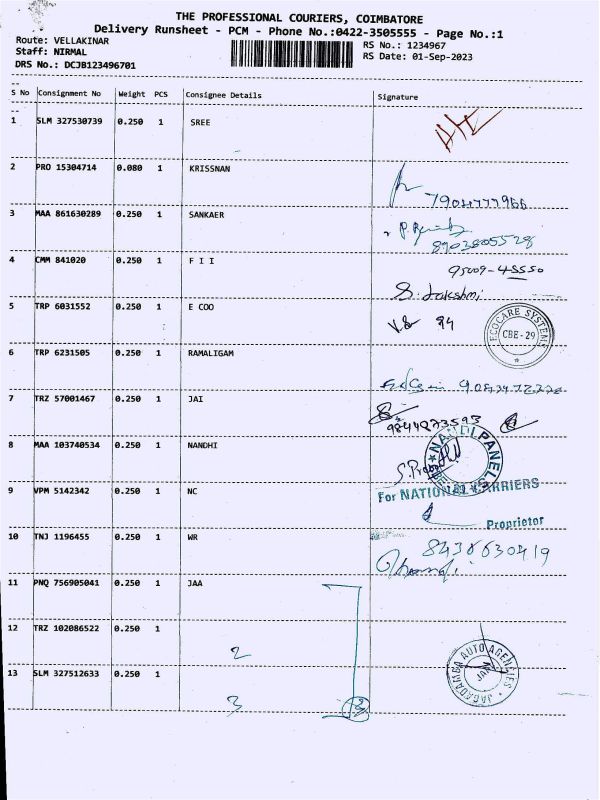 THE PROFESSIONAL COURIERS, COIMBATORE
Delivery Runsheet - PCM - Phone No.:0422-3505555 - Page No.:1
Route: VELLAKINAR
RS No.: 1234967
Staff: NIRMAL
RS Date: 01-Sep-2023
DRS No.: DCJB123496701
S No Consignment No Weight PCS Consignee Details Signature
1 SLM 327530739 0.250 1 SREE
2 PRO 15304714 0.080 1 KRISSNAN
7904777966
3 MAA 861630289 0.250 1 SANKAER
8903805528
4 CMM 841020 0.250 1 F I I
95009-45550
S. Lakshmi
5 TRP 6031552 0.250 1 E COO
94
ECOCARE SYSTEMS
CBE - 29
6 TRP 6231505 0.250 1 RAMALIGAM
7 TRZ 57001467 0.250 1 JAI
8 MAA 103740534 0.250 1 NANDHI
NANDI PANELS
9 VPM 5142342 0.250 1 NC
For NATIONAL CARRIERS
Proprietor
10 TNJ 1196455 0.250 1 WR
8438630419
11 PNQ 756905041 0.250 1 JAA
12 TRZ 102086522 0.250 1
2
JAGADAMBA AUTO AGENCIES
13 SLM 327512633 0.250 1
3